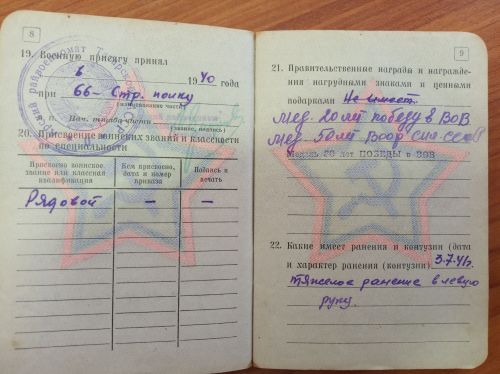 8
19. Военную присягу принял
в 1940 года
при 66- Стр. полку
(наименование части)
п. п. Нач. штаба части
(звание, подпись)
20. Присвоение воинских званий и классности
по специальности
Присвоено воинское звание или классная квалификация
Кем присвоено, дата и номер приказа
Подпись и печать
Рядовой — —
9
21. Правительственные награды и награжде-
ния нагрудными знаками и ценными
подарками Не имеет.
Мед. 20 лет победы в ВОВ
Мед. 50 лет Воор сил СССР
Медаль 30 лет ПОБЕДЫ в ВОВ
22. Какие имеет ранения и контузии (дата
и характер ранения (контузии) 3.7.41г.
тяжелое ранение в левую
руку.